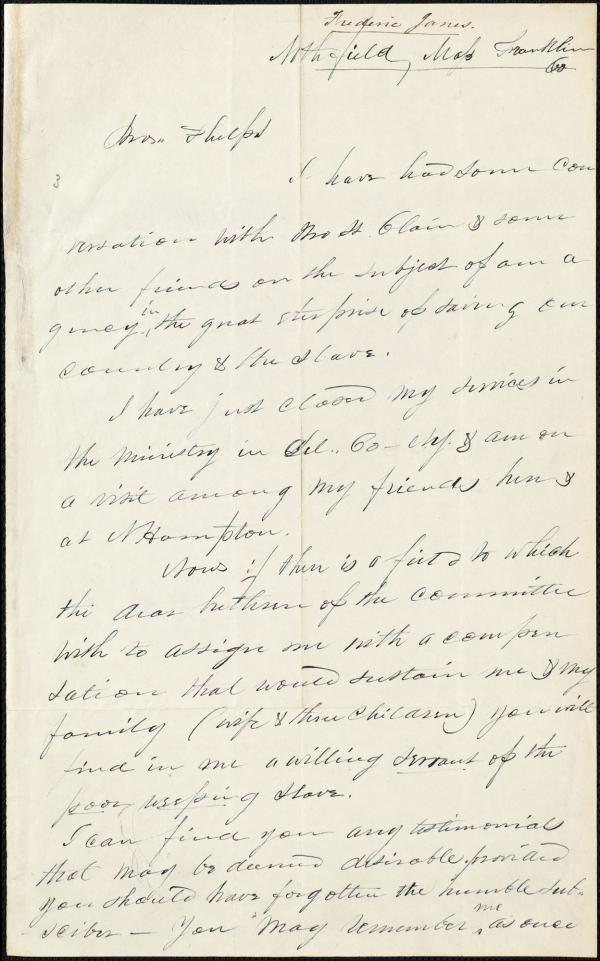 Frederic Janes.
Northfield, Mass Franklin
Co
Bro. Phelps
I have had some con
3
versation with Bro St. Clair & some
other friends on the subject of an a
gency in the great enterprise of saving our
country & the slave.
I have just closed my services in
the ministry in Del. Co - NY. & am on
a visit among my friends here &
at NHampton.
Now if there is a field to which
the dear brethren of the committee
wish to assign me with a compen
sation that would sustain me & my
family (wife & three children) you will
find in me a willing servant of the
poor, weeping slave.
I can find you any testimonials
that may be deemed desirable, provided
you should have forgotten the humble sub-
scriber - You may remember me as once